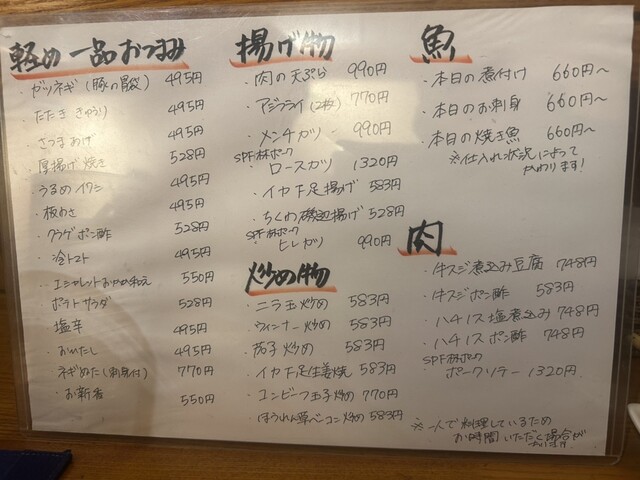 軽め一品おつまみ
・ガツネギ(豚の胃袋) 495円
・たたききゅうり 495円
・さつまあげ 495円
・厚揚げ焼き 528円
・うるめイワシ 495円
・板わさ 495円
・クラゲポン酢 528円
・冷トマト 495円
・エシャレットおかか和え 550円
・ポテトサラダ 528円
・塩辛 495円
・おひたし 495円
・ネギぬた(刺身付) 770円
・お新香 550円
揚げ物
・肉の天ぷら 990円
・アジフライ(2枚) 770円
・メンチカツ 990円
SPF林ポーク
・ロースカツ 1320円
・イカ下足揚げ 583円
・ちくわ磯辺揚げ 528円
SPF林ポーク
・ヒレカツ 990円
炒め物
・ニラ玉炒め 583円
・ウィンナー炒め 583円
・茄子炒め 583円
・イカ下足生姜焼 583円
・コンビーフ玉子炒め 770円
・ほうれん草ベーコン炒め 583円
魚
・本日の煮付け 660円~
・本日のお刺身 660円~
・本日の焼き魚 660円~
※仕入れ状況によって
かわります!
肉
・牛スジ煮込み豆腐 748円
・牛スジポン酢 583円
・ハチノス塩煮込み 748円
・ハチノスポン酢 748円
SPF林ポーク
・ポークソテー 1320円
※一人で料理しているため
お時間いただく場合が
あります。